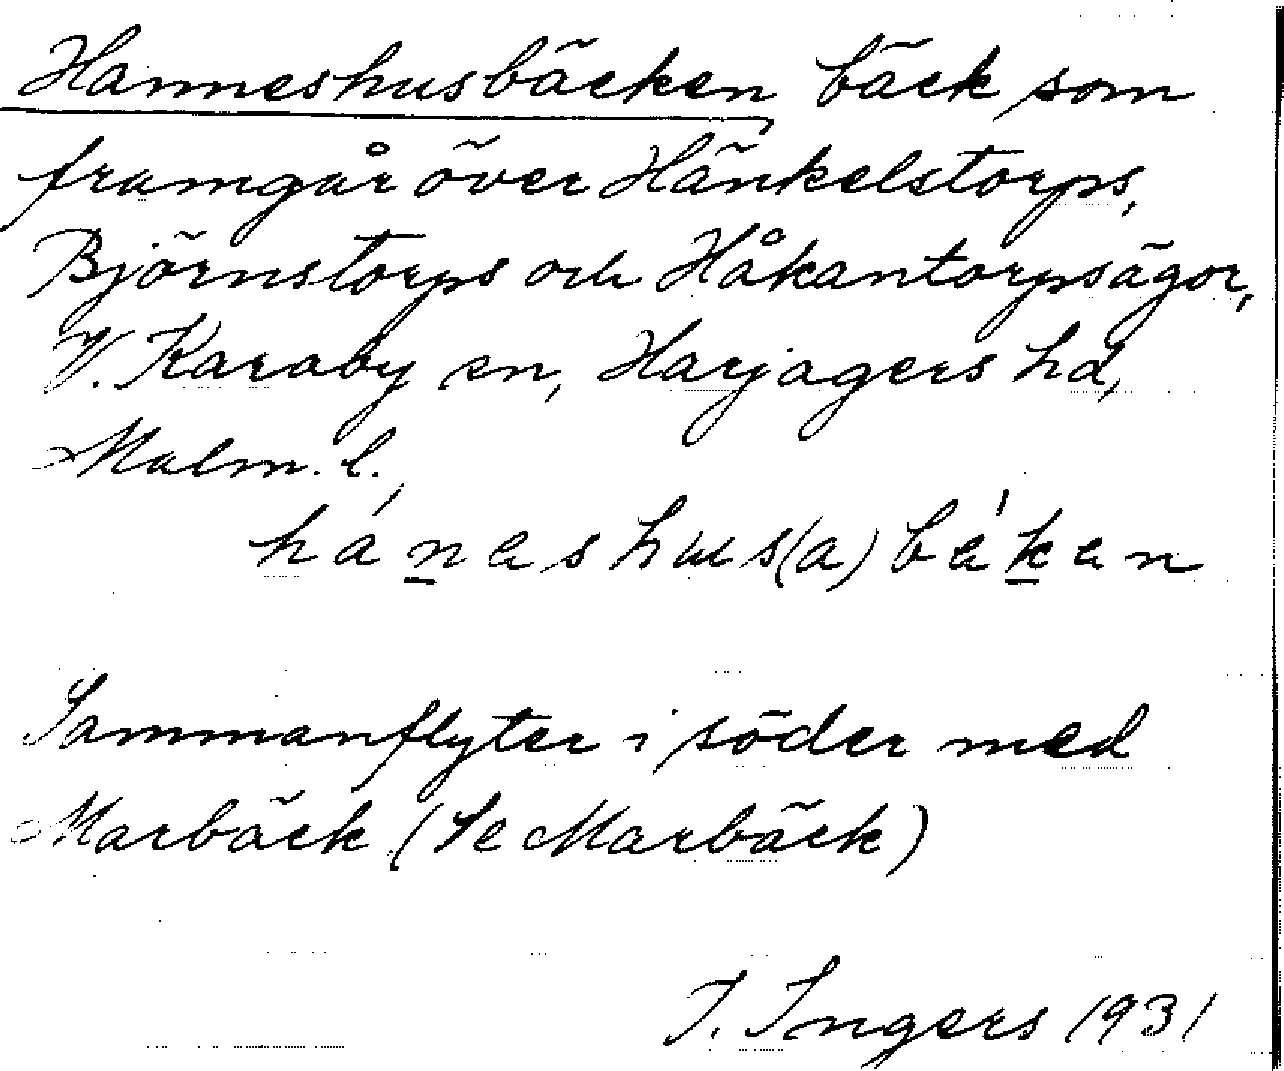 Hanneshusbäcken bäck som
framgår över Hänkelstorps,
Björnstorps och Håkantorpsägor,
V. Karaby sn, Harjagers hd,
Malm. l.
háneshus(a)bèken
Sammanflyter i söder med
Marbäck (Se Marbäck)
I. Ingers 1931